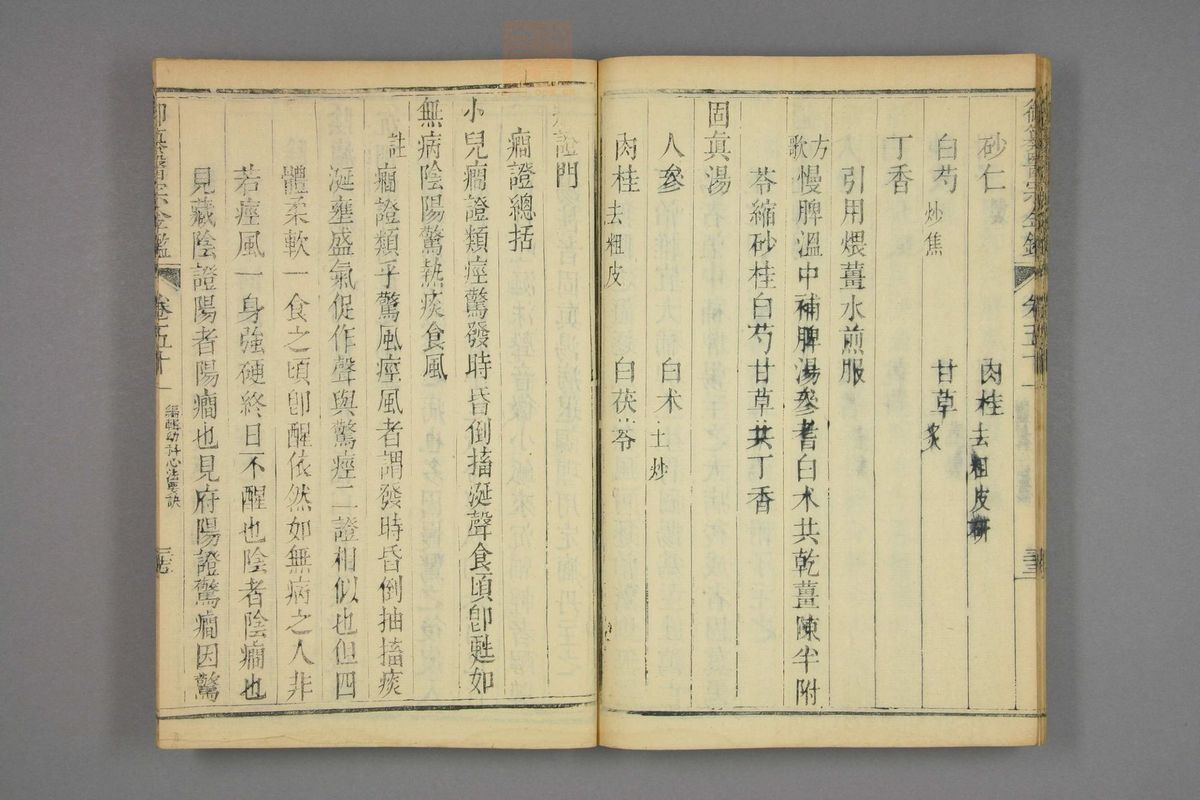 砂仁 肉桂去粗皮研
白芍炒焦 甘草炙
丁香
引用煨薑水煎服
方歌 慢脾溫中補脾湯參耆白朮共乾薑陳半附
苓縮砂桂白芍甘草共丁香
固眞湯
人參 白朮土炒
肉桂去粗皮 白茯苓
證門
癎證總括
小兒癎證類痙驚發時昏倒搐涎聲食頃卽甦如
無病陰陽驚熱痰食風
註 癎證類乎驚風痙風者謂發時昏倒抽搐痰
涎壅盛氣促作聲與驚痙二證相似也但四
體柔軟一食之頃卽醒依然如無病之人非
若痙風一身強硬終日不醒也陰者陰癎也
見藏陰證陽者陽癎也見府陽證驚癎因驚
御纂醫宗金鑑 卷五十一 編輯幼科心法要訣